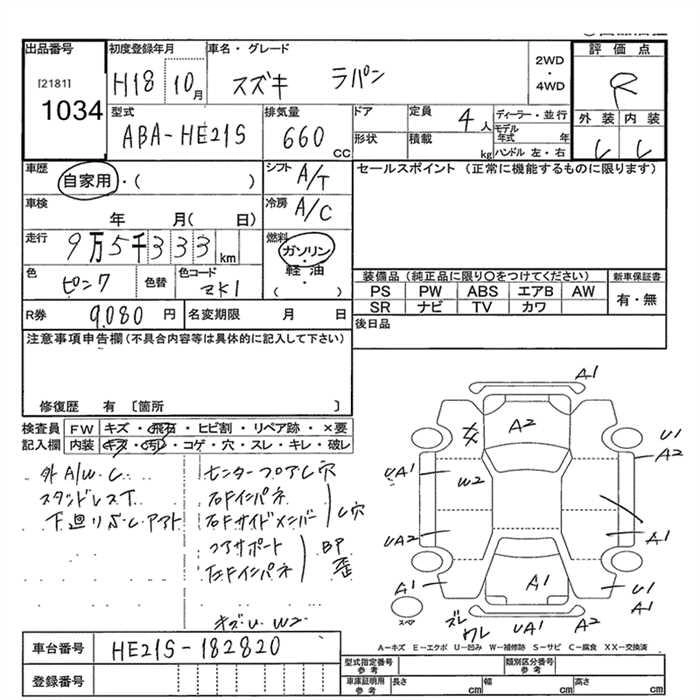 出品番号 初度登録年月 車名・グレード 評価点
[2181] H18 10月 スズキ ラパン 2WD・4WD R
1034 外装 内装
型式 排気量 ドア 定員 4人 ディーラー・並行
ABA-HE21S 660cc 形状 積載 kg モデル年式 年
ハンドル 左・右
車歴 自家用・( ) シフト A/T セールスポイント (正常に機能するものに限ります)
車検 年 月( 日) 冷房 A/C
走行 9万5千333km 燃料 ガソリン・軽油・( )
色 ピンク 色替 色コード 装備品 (純正品に限り○をつけてください) 新車保証書
PS PW ABS エアB AW 有・無
SR ナビ TV カワ
R券 9.080円 名変期限 月 日 後日品
注意事項申告欄(不具合内容等は具体的に記入して下さい)
修復歴 有 〔箇所 〕
検査員記入欄 FW キズ・飛石・ヒビ割・リペア跡・×要
内装 キズ・汚レ・コゲ・穴・スレ・キレ・破レ
外A/W.C センターフロアし穴
右Fインパネ
右Fサイドメンバー し穴
コアサポート BP
左Fインパネ 歪
キズU W2
A1
A2
U1
A2
UA1
W2
UA2
A1
A1
A1
U1
A1
スペア
ズレ
ワレ
UA1
A2
A-キズ E-エクボ U-凹み W-補修跡 S-サビ C-腐食 XX-交換済
車台番号 HE21S-182820
登録番号
型式指定番号参考 類別区分番号参考
車庫証明用参考 長さ cm 幅 cm 高さ cm